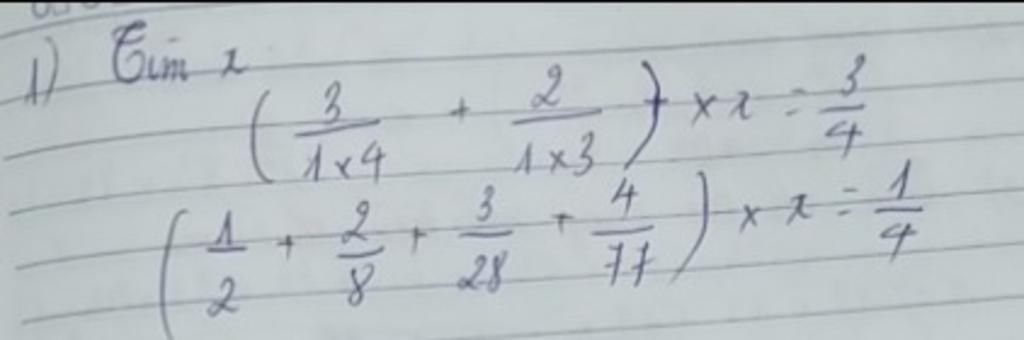 1) Tìm x
( 3/1×4 + 2/1×3 ) × x = 3/4
( 1/2 + 2/8 + 3/28 + 4/77 ) × x = 1/4